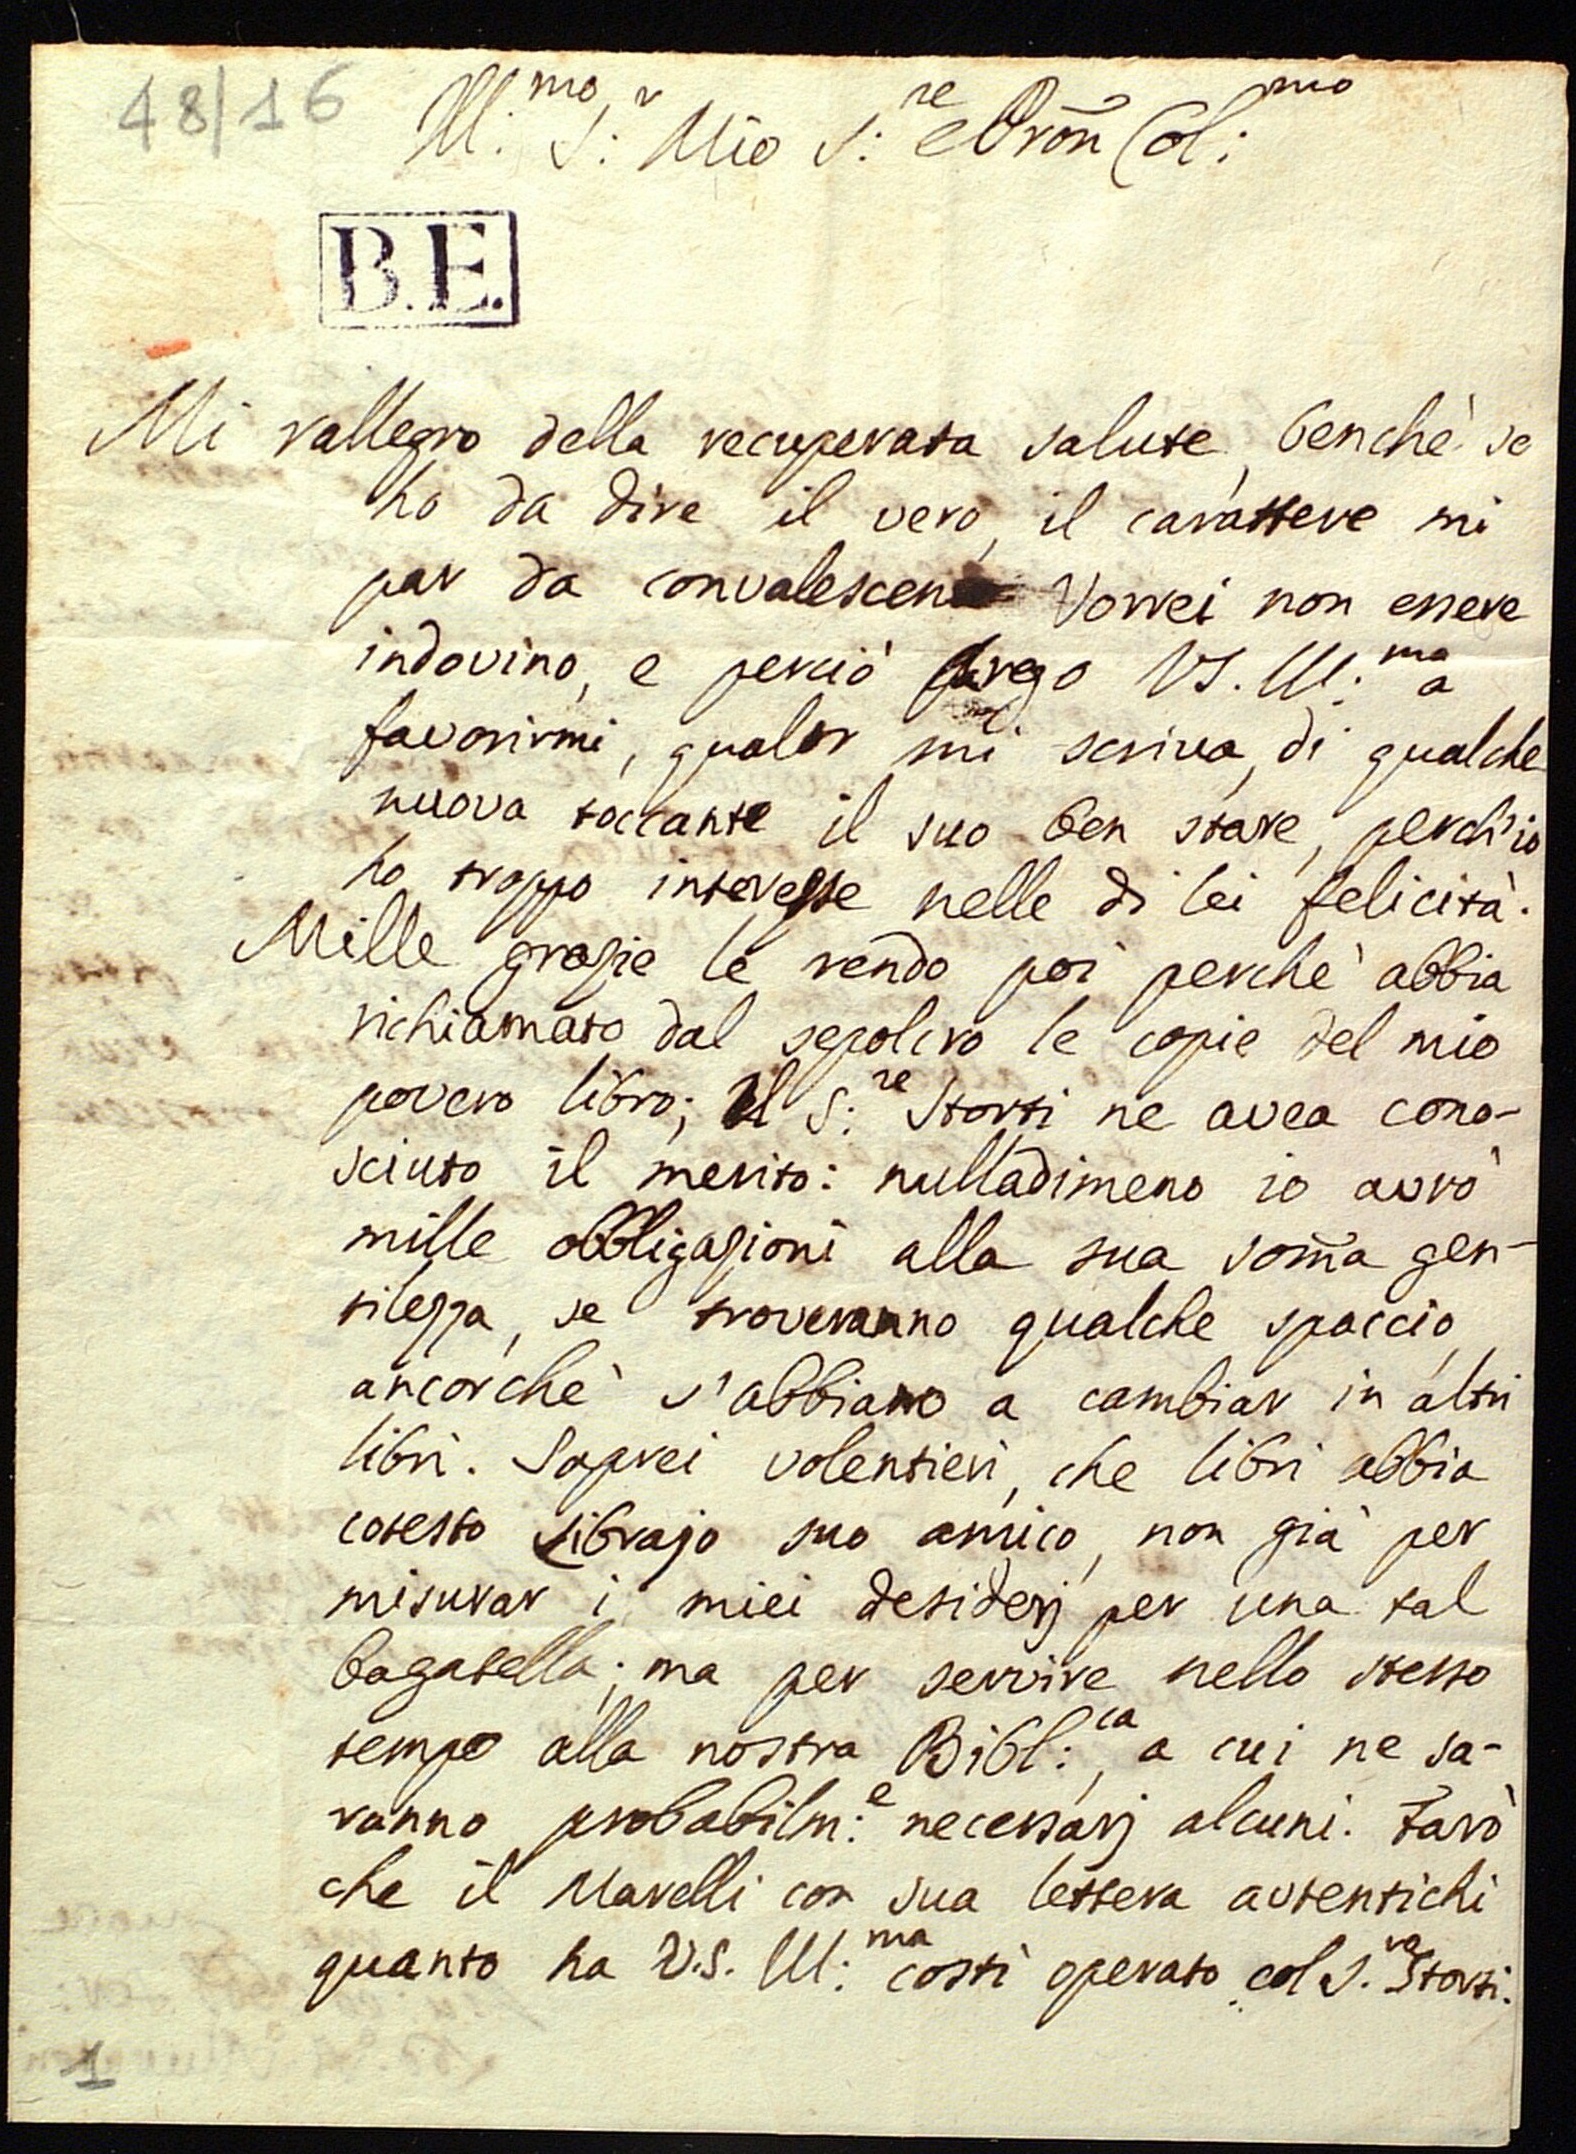 48/16
Ill:mo S:r Mio S:re e Pron Col:mo
B.E.
Mi rallegro della recuperata salute, benchè se
ho da dire il vero, il carattere mi
par da convalescente Vorrei non essere
indovino, e perciò prego VS. Ill:ma a
favorirmi, qualor mi scriva, di qualche
nuova toccante il suo ben stare, perch'io
ho troppo interesse nelle di lei felicità.
Mille grazie le rendo poi perchè abbia
richiamato dal sepolcro le copie del mio
povero libro; Il S:re Storti ne avea cono-
sciuto il merito: nulladimeno io avrò
mille obbligazioni alla sua som̃a gen-
tilezza, se troveranno qualche spaccio,
ancorchè s'abbiano a cambiar in altri
libri. Saprei volentieri, che libri abbia
cotesto Librajo suo amico, non già per
misurar i miei desiderj per una tal
bagatella; ma per servire nello stesso
tempo alla nostra Bibl:ca, a cui ne sa-
ranno probabilm:e necessarj alcuni. Farò
che il Marelli con sua lettera autentichi
quanto ha V.S. Ill:ma costì operato col S.re Storti.
1